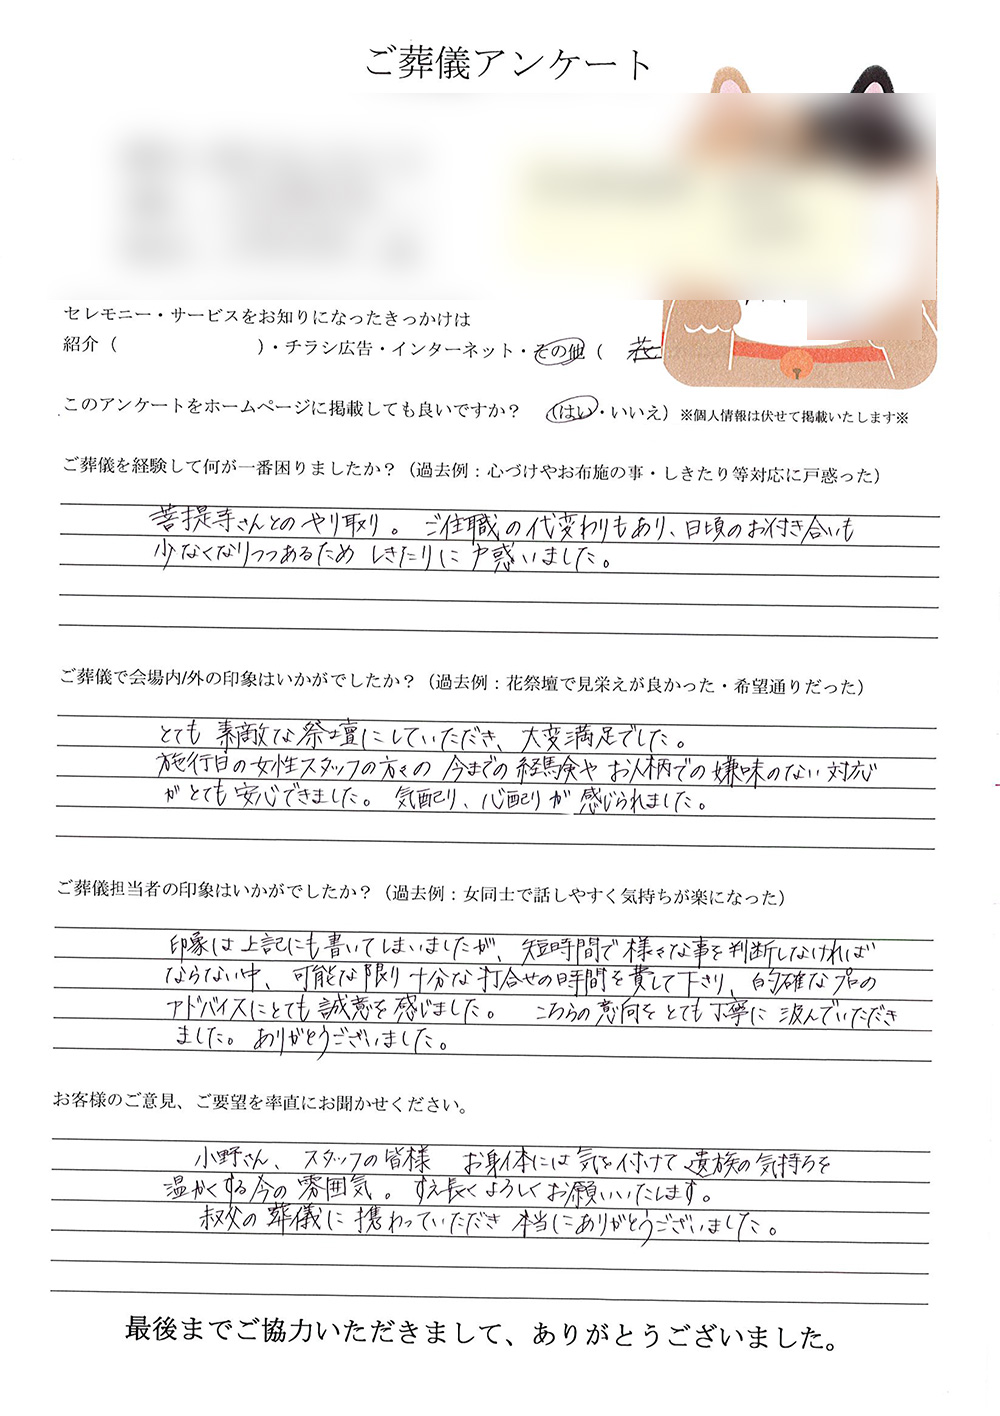 ご葬儀アンケート
セレモニー・サービスをお知りになったきっかけは
紹介（　　　　　　　）・チラシ広告・インターネット・その他（
このアンケートをホームページに掲載しても良いですか？　（はい・いいえ）※個人情報は伏せて掲載いたします※
ご葬儀を経験して何が一番困りましたか？（過去例：心づけやお布施の事・しきたり等対応に戸惑った）
菩提寺さんとのやり取り。ご住職の代変わりもあり、日頃のお付き合いも
少なくなりつつあるため しきたりに戸惑いました。
ご葬儀で会場内/外の印象はいかがでしたか？（過去例：花祭壇で見栄えが良かった・希望通りだった）
とても 素敵な祭壇にしていただき、大変満足でした。
施行日の女性スタッフの方々の 今までの経験や お人柄での嫌味のない対応
がとても安心できました。気配り、心配りが感じられました。
ご葬儀担当者の印象はいかがでしたか？（過去例：女同士で話しやすく気持ちが楽になった）
印象は上記にも書いてしまいましたが、短時間で様々な事を判断しなければ
ならない中、可能な限り十分な打合せの日時間を費して下さり、的確なプロの
アドバイスにとても誠意を感じました。 こちらの意向をとても丁寧に汲んでいただき
ました。ありがとうございました。
お客様のご意見、ご要望を率直にお聞かせください。
小野さん、スタッフの皆様 お身体には気を付けて遺族の気持ちを
温かくする今の雰囲気。すえ長くよろしくお願いいたします。
叔父の葬儀に携わっていただき本当にありがとうございました。
最後までご協力いただきまして、ありがとうございました。